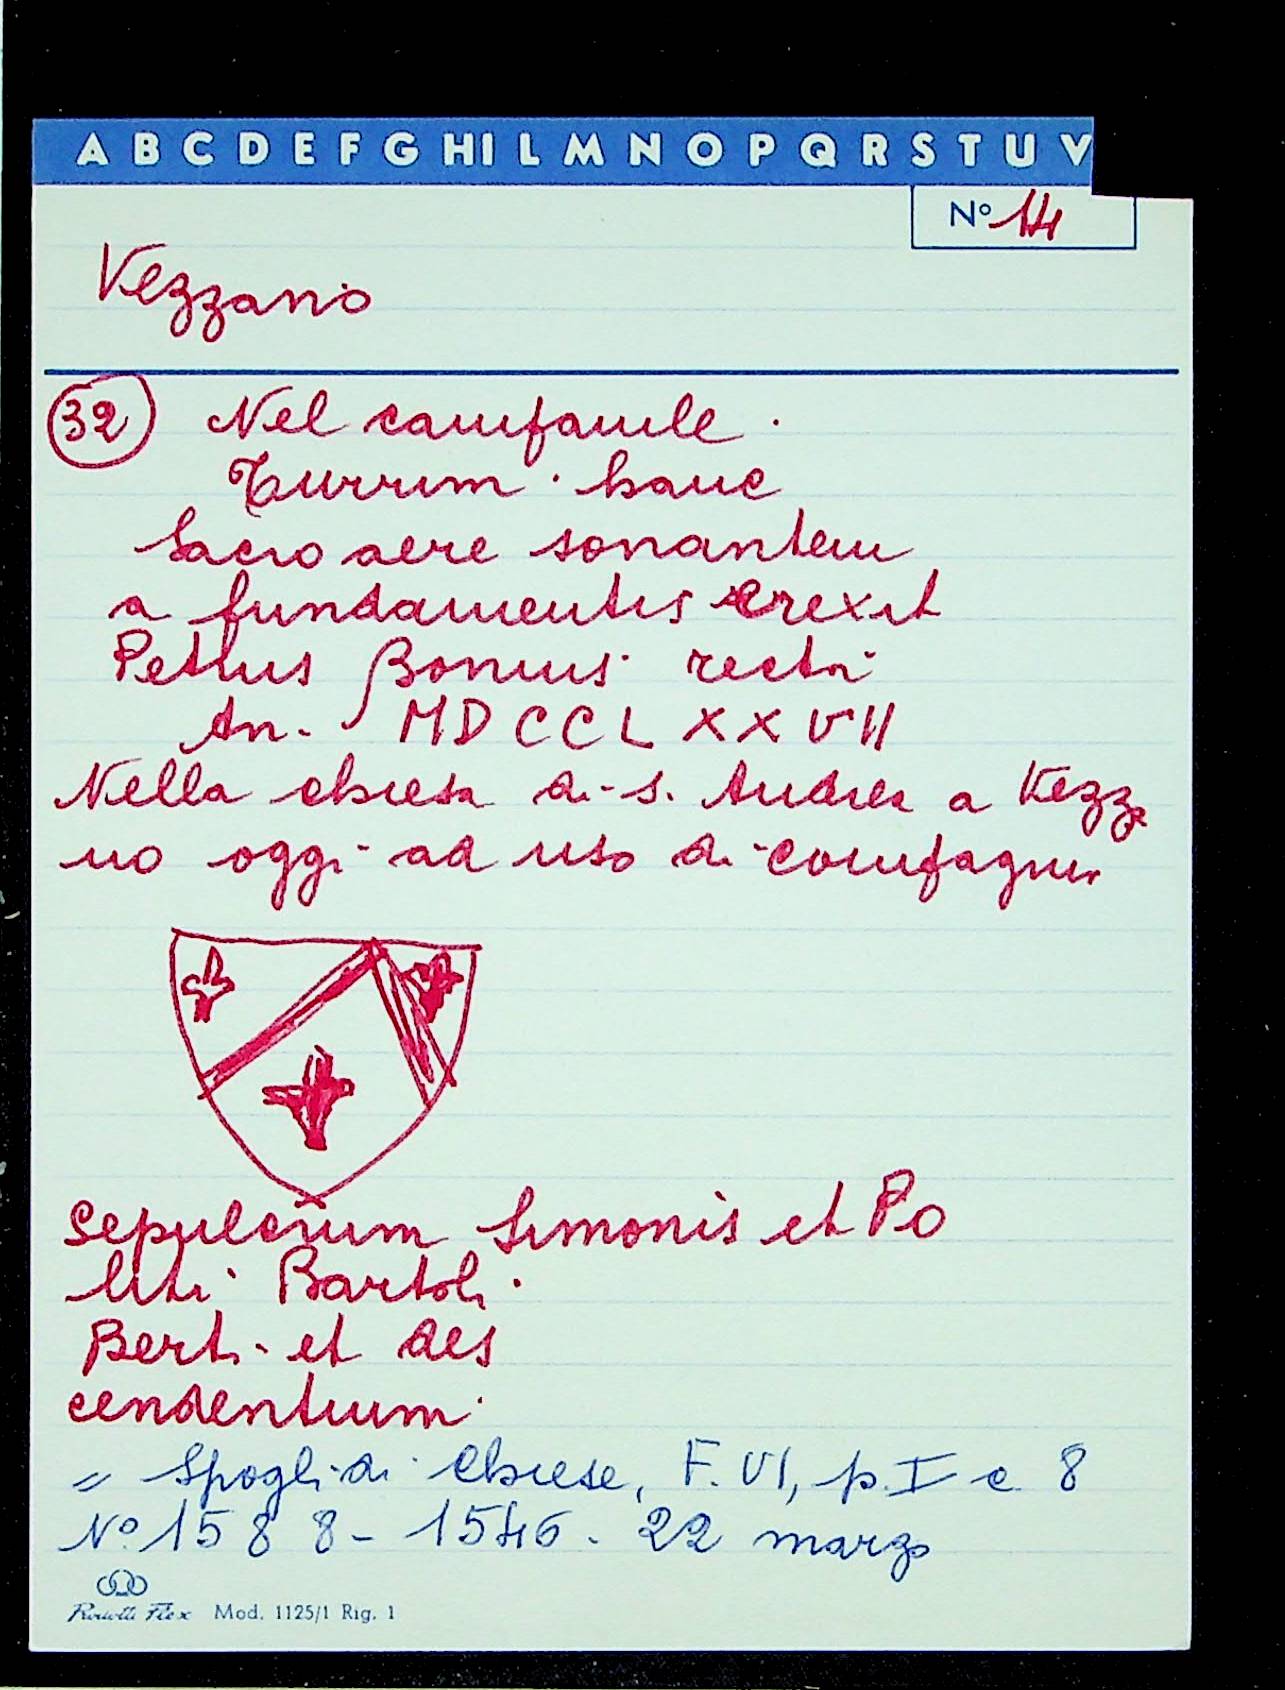 A B C D E F G H I L M N O P Q R S T U V
N° 14
Vezzano
32 Nel campanile.
Turrim. hanc
Sacro aere sonantem
a fundamentis erexit
Petrus Bonius rectri
An. MDCCLXXVII
Nella chiesa di s. Andrea a Vezza
no oggi ad uso di compagnia
Sepulcrum Simonis et Po
liti Bartoli.
Berti. et des
cendentium.
= Spogli di Chiese, F. VI, p. I c 8
N° 1588 - 1546. 22 marzo
Flex Mod. 1125/1 Rig. 1